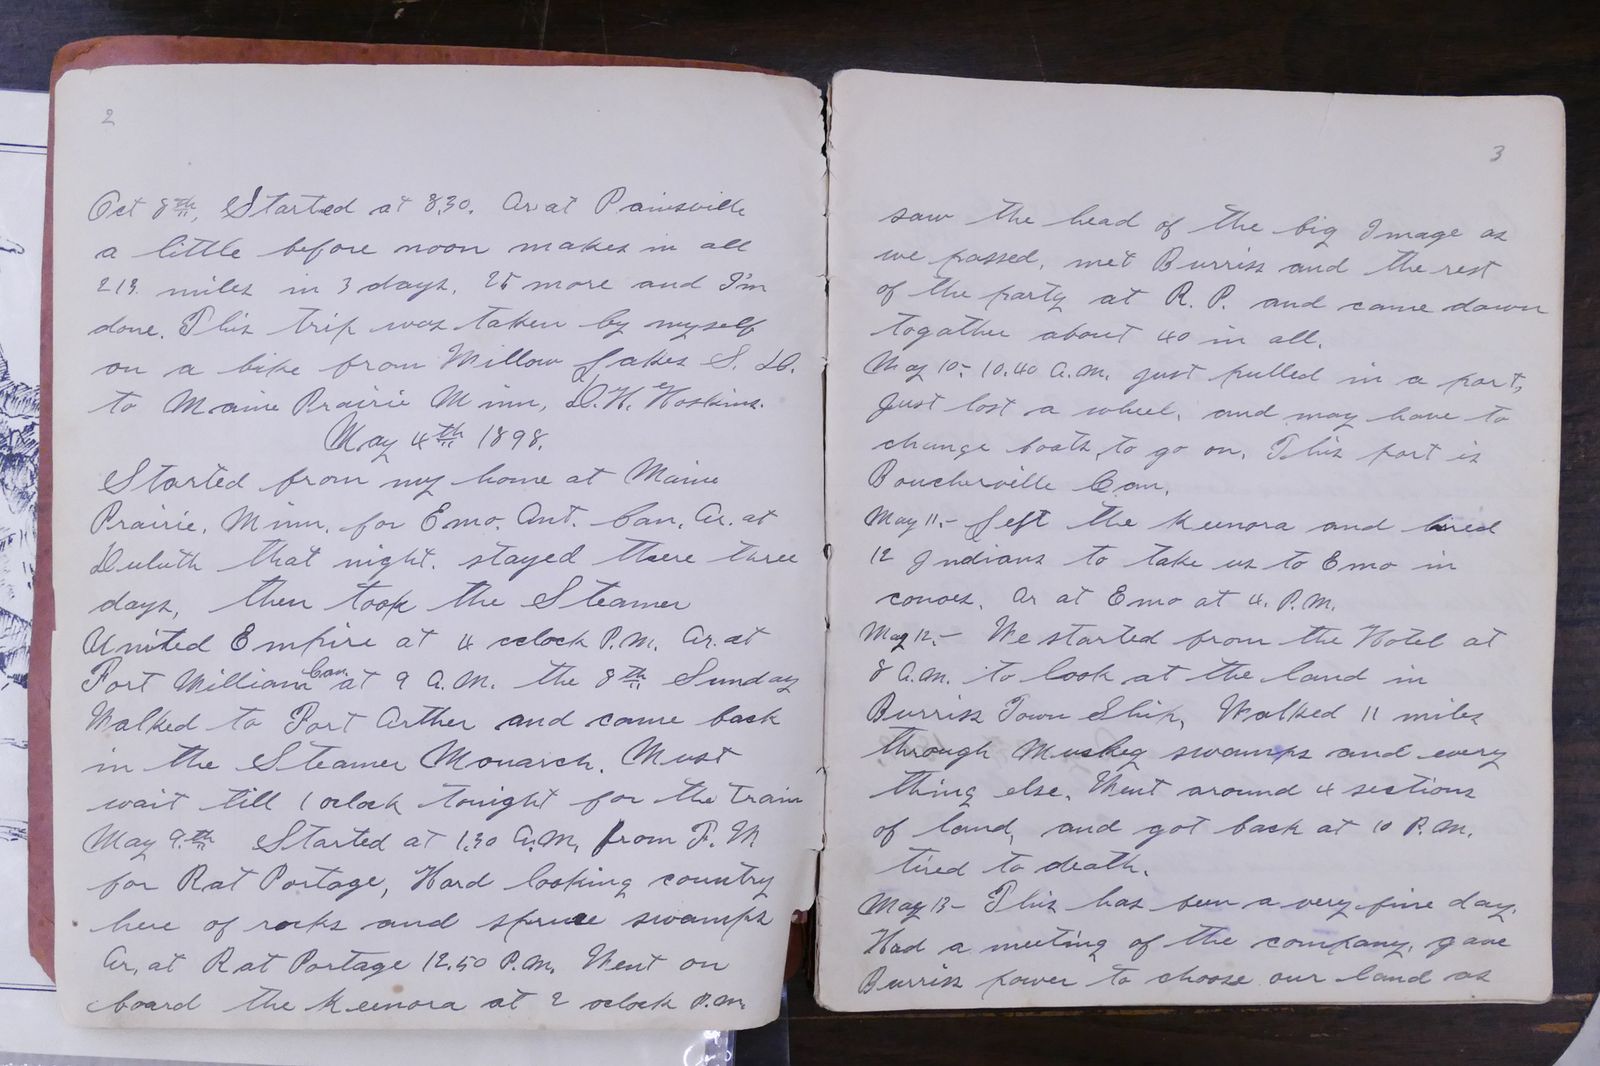 2
Oct 8th, Started at 8.30. Ar at Painsville
a little before noon makes in all
213 miles in 3 days. 25 more and I'm
done. This trip was taken by myself
on a bike from Willow Lakes S. D.
to Maine Prairie Minn, D. H. Hoskins.
May 4th 1898.
Started from my home at Maine
Prairie, Minn. for Emo. Ont. Can. Ar. at
Duluth that night. stayed there three
days, then took the Steamer
United Empire at 4 oclock P.M. Ar. at
Fort William Can. at 9 A.M. the 8th Sunday
Walked to Port Arther and came back
in the Steamer Monarch. Must
wait till 1 oclock tonight for the train
May 9.th Started at 1.30 A.M. from F. W
for Rat Portage, Hard looking country
here of rocks and spruce swamps
Ar. at Rat Portage 12.50 P.M. Went on
board the Keenora at 2 oclock P.M.
3
saw the head of the big Image as
we passed. met Burriss and the rest
of the party at R. P. and came down
togather about 40 in all.
May 10- 10.40 A.M. just pulled in a port,
Just lost a wheel, and may have to
change boats to go on. This port is
Boucherville Can.
May 11.- Left the Keenora and hired
12 Indians to take us to Emo in
conoes. Ar at Emo at 4. P.M.
May 12.- We started from the Hotel at
8 A.M. to look at the land in
Burriss Town Ship, Walked 11 miles
through Muskeg swamps and every
thing else. Went around 4 sections
of land, and got back at 10 P.M.
tired to death.
May 13- This has been a very fine day.
Had a meeting of the company, gave
Burriss power to choose our land as